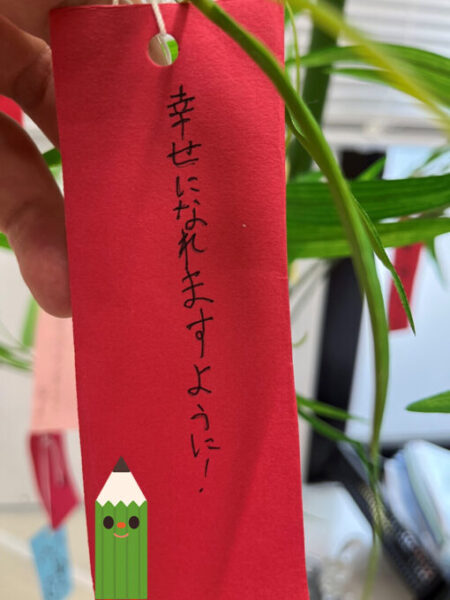 幸せになれますように!